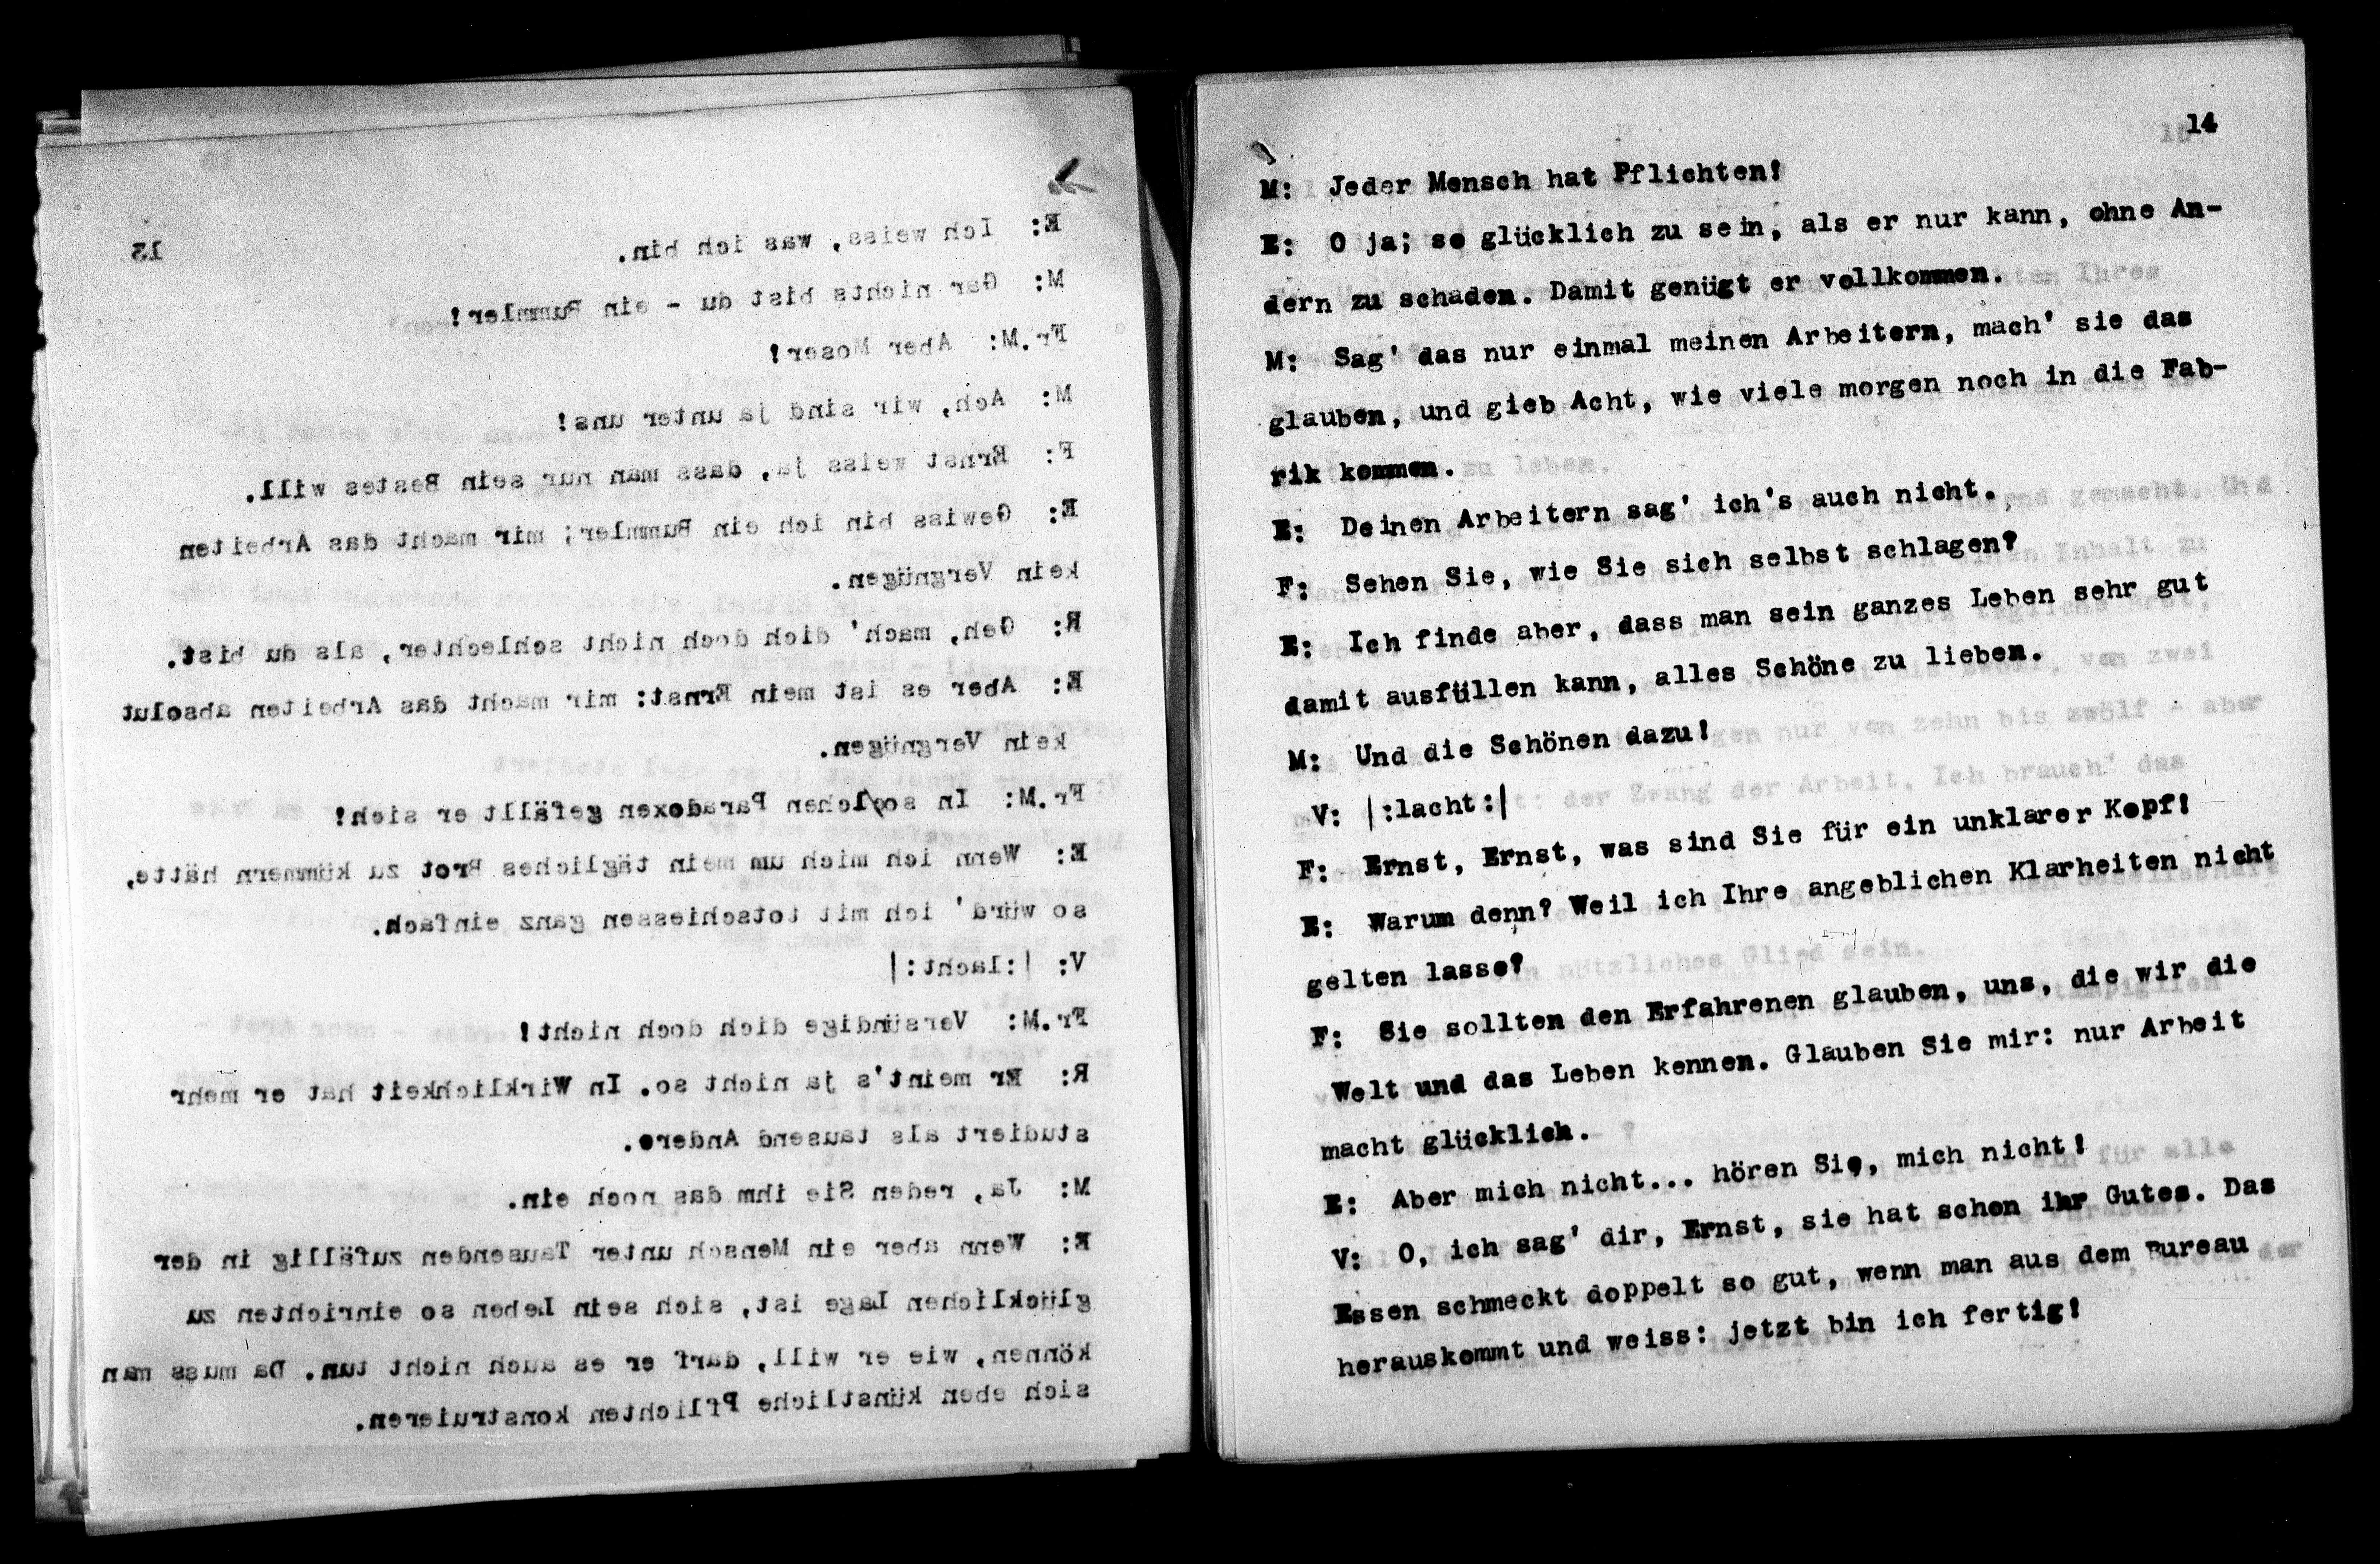 13
E: Ich weiss, was ich bin.
M: Gar nichts bist du - ein Bummler!
Fr.M: Aber Moser!
M: Ach, wir sind ja unter uns!
F: Ernst weiss ja, dass man nur sein Bestes will.
E: Gewiss bin ich ein Bummler; mir macht das Arbeiten
kein Vergnügen.
R: Geh, mach' dich doch nicht schlechter, als du bist.
E: Aber es ist mein Ernst: mir macht das Arbeiten absolut
kein Vergnügen.
Fr.M: In solchen Paradoxen gefällt er sich!
E: Wenn ich mich um mein tägliches Brot zu kümmern hätte,
so würd' ich mit totschiessen ganz einfach.
V: |:lacht:|
Fr.M: Versündige dich doch nicht!
R: Er meint's ja nicht so. In Wirklichkeit hat er mehr
studiert als tausend Andere.
M: Ja, reden Sie ihm das noch ein.
E: Wenn aber ein Mensch unter Tausenden zufällig in der
glücklichen Lage ist, sich sein Leben so einrichten zu
können, wie er will, darf er es auch nicht tun. Da muss man
sich eben künstliche Pflichten konstruieren.
14
M: Jeder Mensch hat Pflichten!
E: O ja; so glücklich zu sein, als er nur kann, ohne An-
dern zu schaden. Damit genügt er vollkommen.
M: Sag' das nur einmal meinen Arbeitern, mach' sie das
glauben, und gieb Acht, wie viele morgen noch in die Fab-
rik kommen.
E: Deinen Arbeitern sag' ich's auch nicht.
F: Sehen Sie, wie Sie sich selbst schlagen?
E: Ich finde aber, dass man sein ganzes Leben sehr gut
damit ausfüllen kann, alles Schöne zu lieben.
M: Und die Schönen dazu!
V: |:lacht:|
F: Ernst, Ernst, was sind Sie für ein unklarer Kopf!
E: Warum denn? Weil ich Ihre angeblichen Klarheiten nicht
gelten lasse?
F: Sie sollten den Erfahrenen glauben, uns, die wir die
Welt und das Leben kennen. Glauben Sie mir: nur Arbeit
macht glücklich.
E: Aber mich nicht... hören Sie, mich nicht!
V: O, ich sag' dir, Ernst, sie hat schon ihr Gutes. Das
Essen schmeckt doppelt so gut, wenn man aus dem Bureau
herauskommt und weiss: jetzt bin ich fertig!